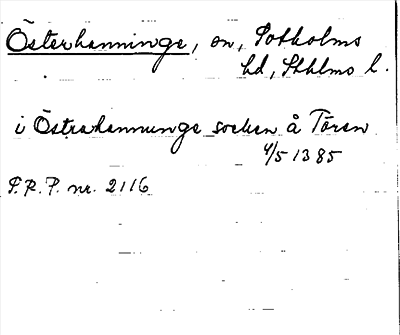 Österhanninge, sn, Sotholms
hd, Sthlms l.
i Östrahanninge socken å Tören
4/5 1385
S.R.P. nr. 2116